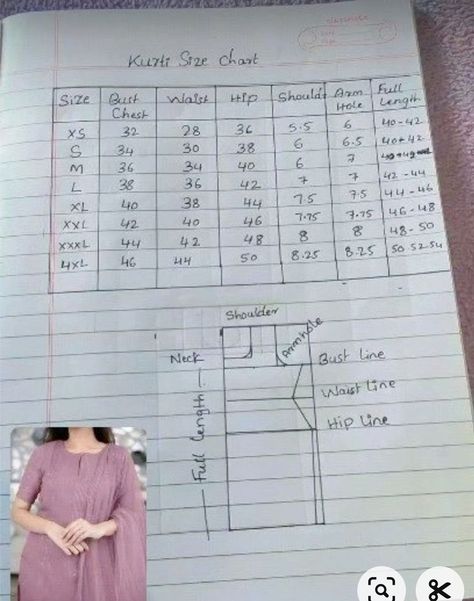 Kurti Size Chart
Size Bust Chest Waist Hip Shoulder Arm Hole Full Length
XS 32 28 36 5.5 6 40-42
S 34 30 38 6 6.5 40+42
M 36 34 40 6 7
L 38 36 42 7 7 42-44
XL 40 38 44 7.5 7.5 44-46
XXL 42 40 46 7.75 7.75 46-48
XXXL 44 42 48 8 8 48-50
4XL 46 44 50 8.25 8.25 50 52-54
Shoulder
Neck
Armhole
Bust line
Waist Line
Hip Line
Full length